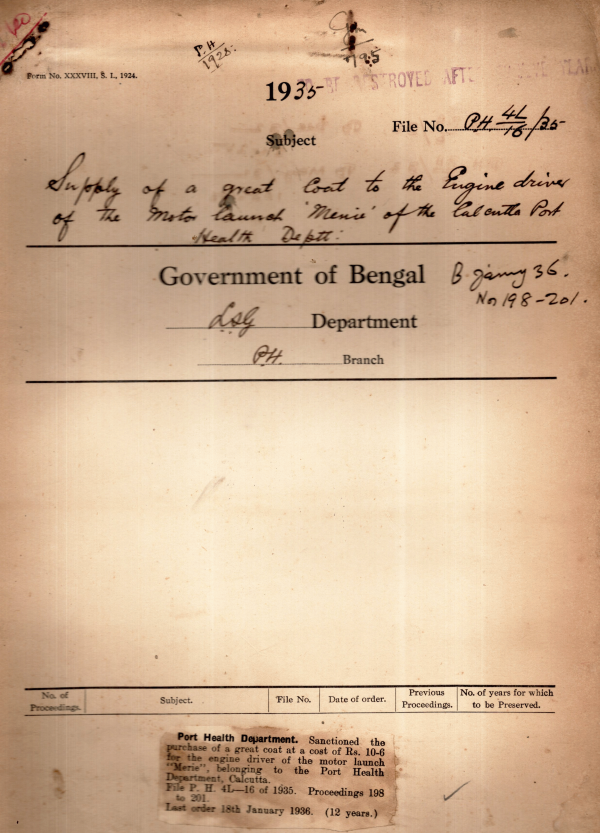 P.H.
1928.
Form No. XXXVIII, S. I., 1924.
1935
BE DESTROYED AFTE
File No. P.H. 4L/16/35
Subject
Supply of a great coat to the Engine driver
of the Motor Launch 'Merie' of the Calcutta Port
Health Deptt:
Government of Bengal
B. Jany 36.
Nos 198-201.
LSG Department
P.H. Branch
No. of Proceedings.
Subject.
File No.
Date of order.
Previous Proceedings.
No. of years for which to be Preserved.
Port Health Department. Sanctioned the
purchase of a great coat at a cost of Rs. 10-6
for the engine driver of the motor launch
"Merie", belonging to the Port Health
Department, Calcutta.
File P. H. 4L—16 of 1935. Proceedings 198
to 201.
Last order 18th January 1936. (12 years.)